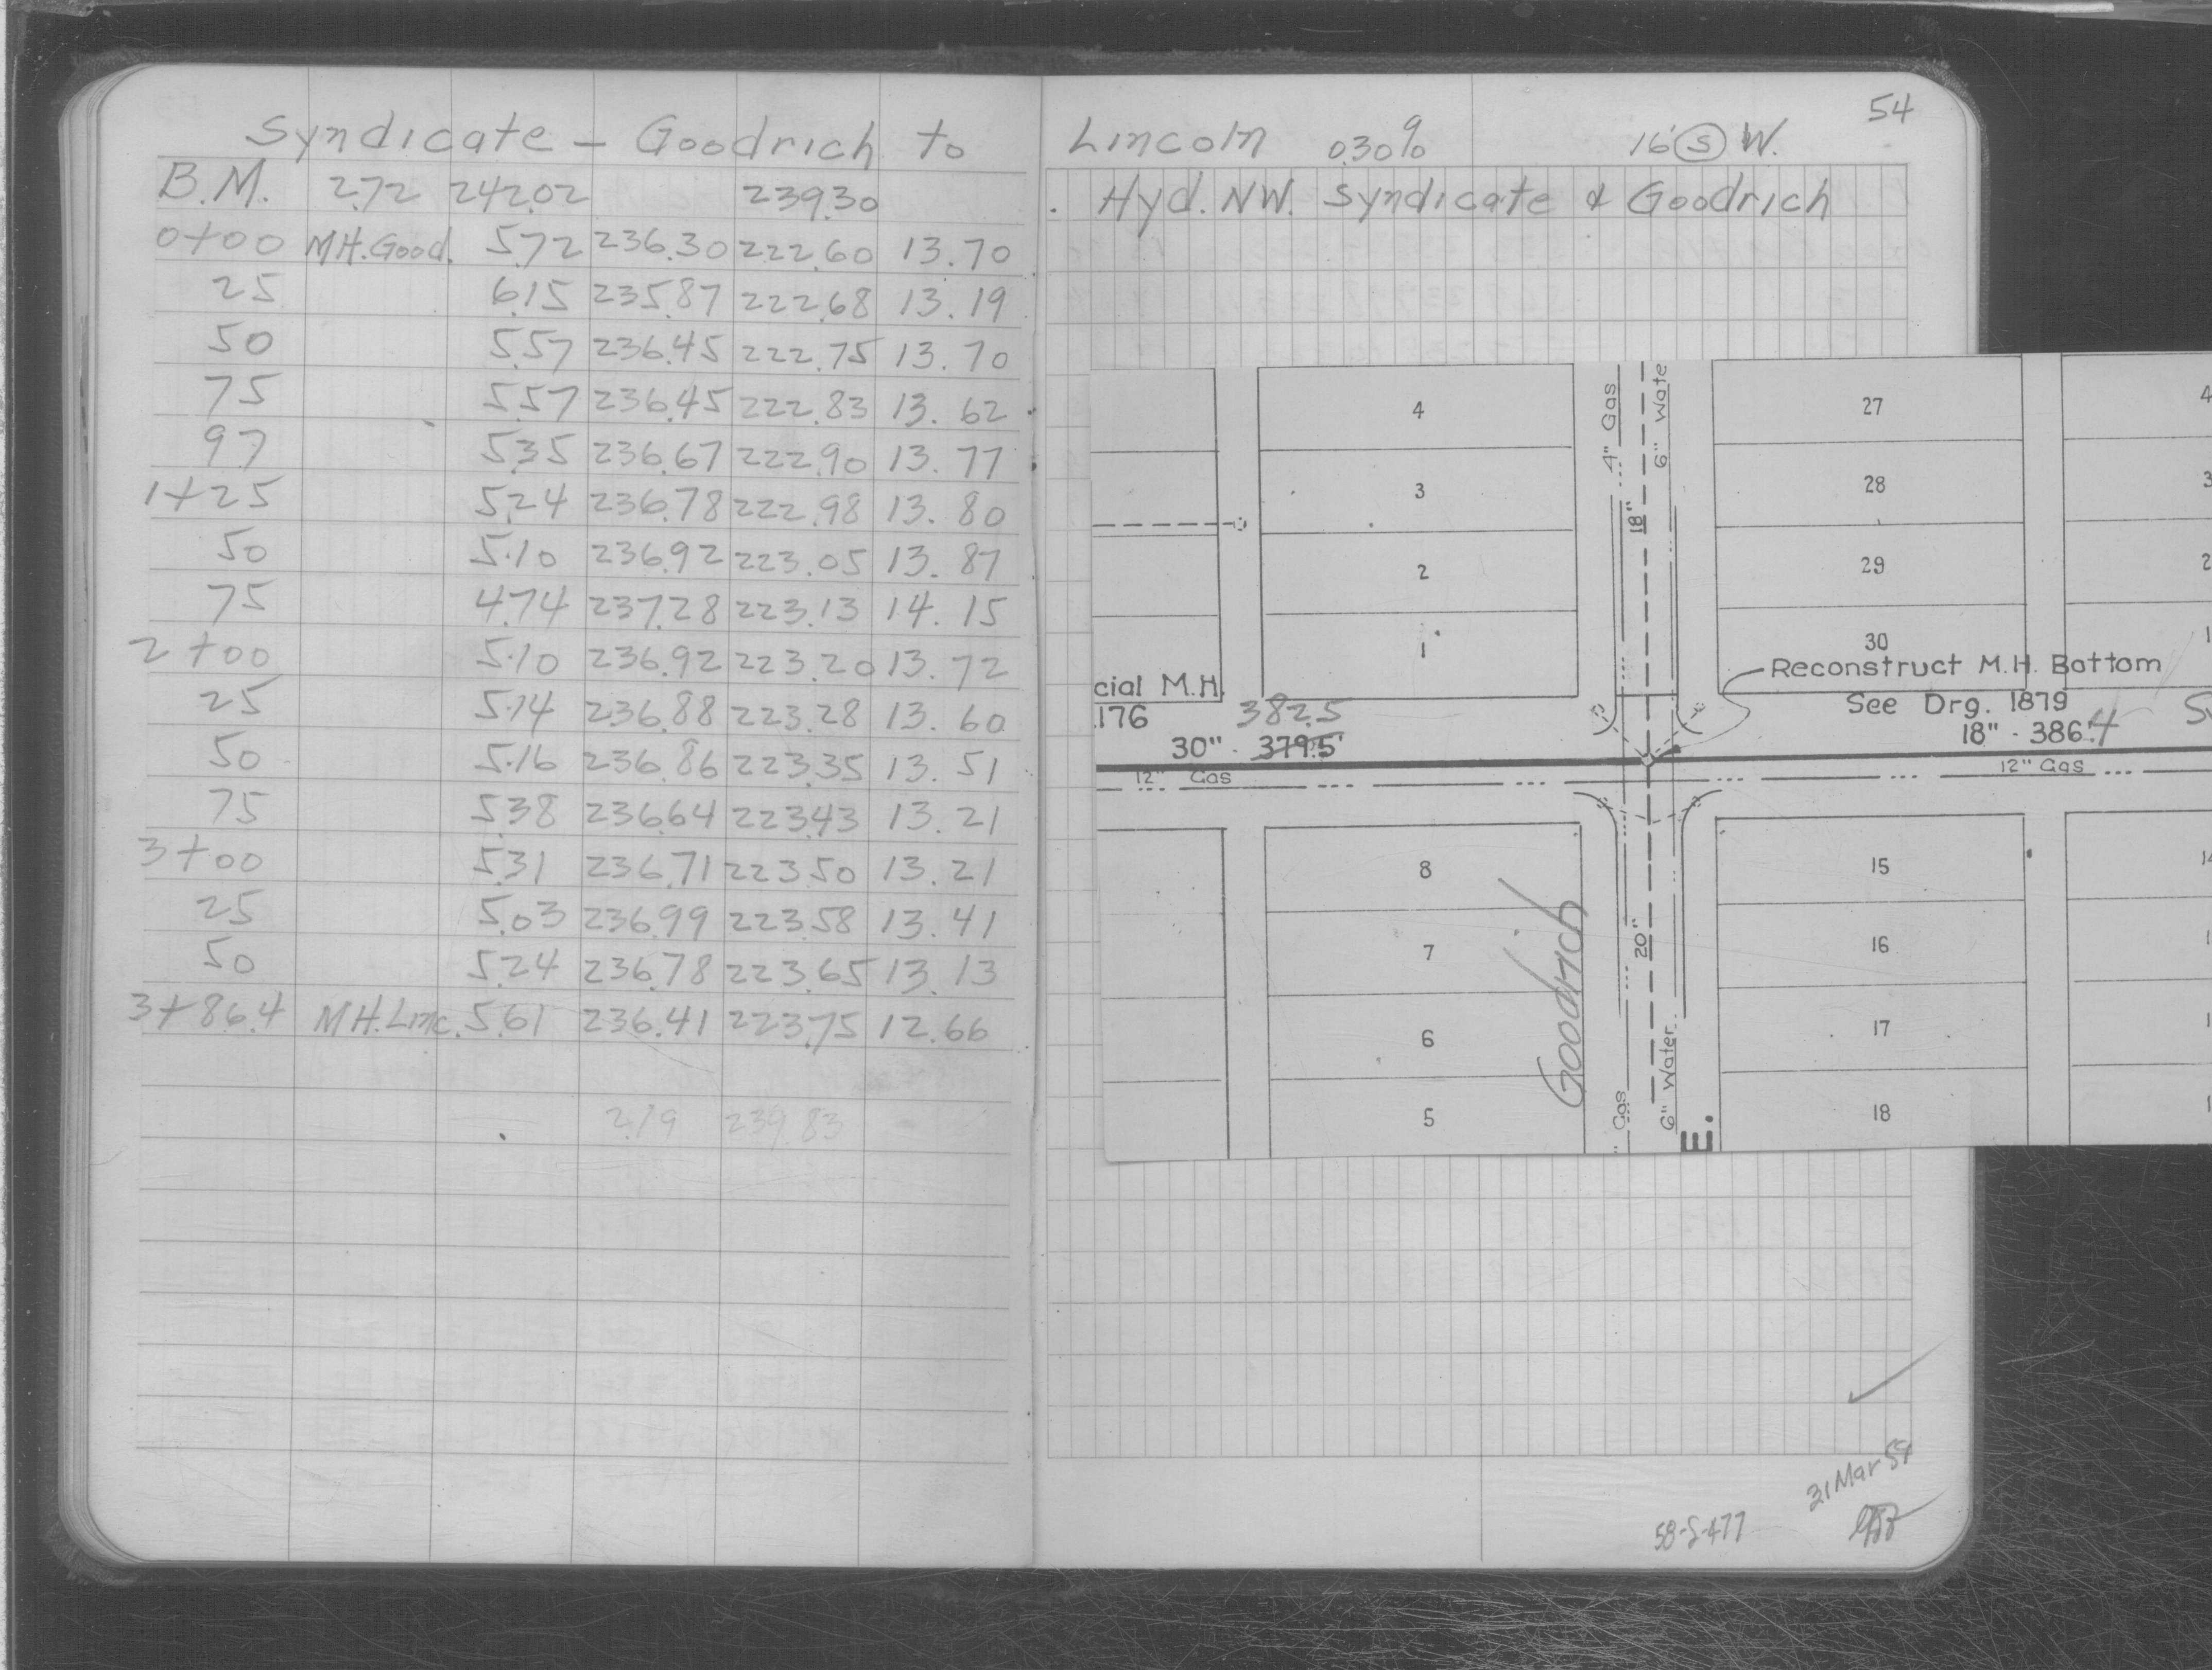 54
Syndicate - Goodrich to Lincoln 0.30% 16' S W.
B.M. 2.72 242.02 239.30 Hyd. NW. Syndicate & Goodrich
0+00 MH.Good. 5.72 236.30 222.60 13.70
25 6.15 235.87 222.68 13.19
50 5.57 236.45 222.75 13.70
75 5.57 236.45 222.83 13.62
97 5.35 236.67 222.90 13.77
1+25 5.24 236.78 222.98 13.80
50 5.10 236.92 223.05 13.87
75 4.74 237.28 223.13 14.15
2+00 5.10 236.92 223.20 13.72
25 5.14 236.88 223.28 13.60
50 5.16 236.86 223.35 13.51
75 5.38 236.64 223.43 13.21
3+00 5.31 236.71 223.50 13.21
25 5.03 236.99 223.58 13.41
50 5.24 236.78 223.65 13.13
3+86.4 MH.Linc. 5.61 236.41 223.75 12.66
2.19 239.83
4 27 4
3 28 3
2 29 2
1 30 1
4" Gas
18"
6" Wate
Reconstruct M.H. Bottom
See Drg. 1879
18" - 386.4
cial M.H.
.176
382.5
30" - 379.5'
12" Gas
12" Gas
8 15 14
7 16 1
6 17 1
5 18 1
Goodrich
" Gas
20"
6" Water
E.
21 Mar 58
58-S-477